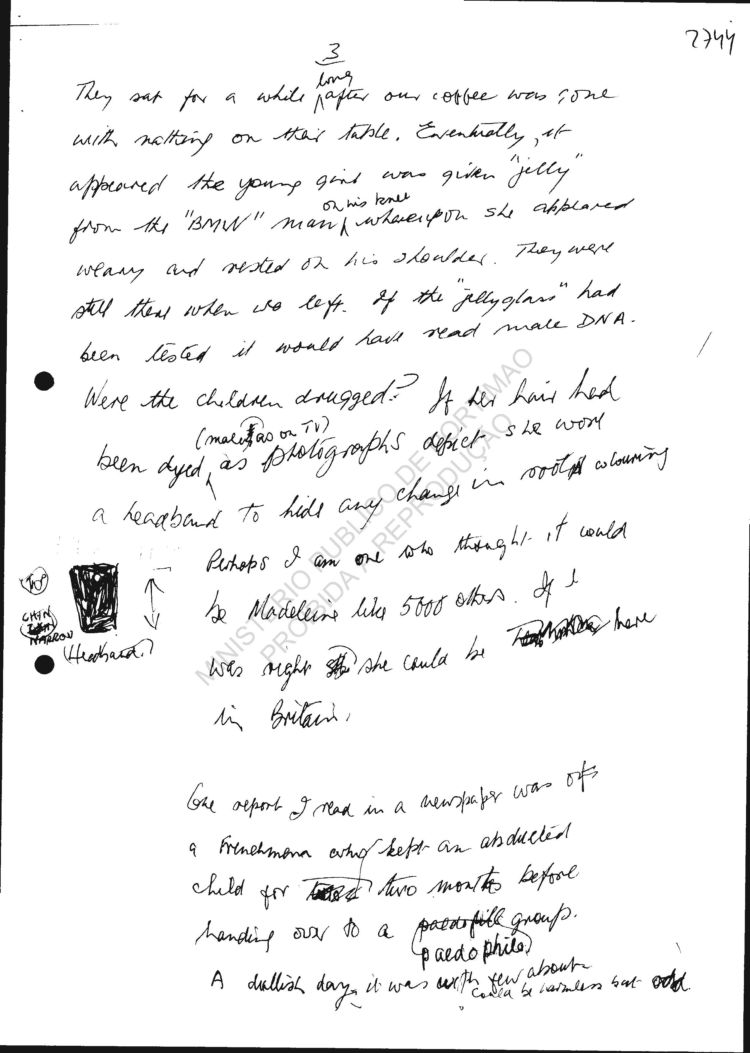 2744
3
They sat for a while long after our coffee was gone
with nothing on their table. Eventually, it
appeared the young girl was given "jelly"
from the "BMW" man on his knee whereupon she appeared
weary and rested on his shoulder. They were
still there when we left. If the "jellyglass" had
been tested it would have read male DNA.
Were the children drugged? If her hair had
been dyed (male as on TV) as photographs depict she wore
a headband to hide any change in root colouring
Perhaps I am one who thought it could
be Madeleine like 5000 others. If I
was right she could be here
in Britain.
CHIN
NARROW
(Headband)
One report I read in a newspaper was of
a Frenchman who kept an abducted
child for two months before
handing over to a paedofile group.
paedophile
A dullish day it was with few about
could be harmless but odd
MINISTÉRIO PUBLICO DE PORTIMAO
PROIBIDA A REPRODUÇÃO